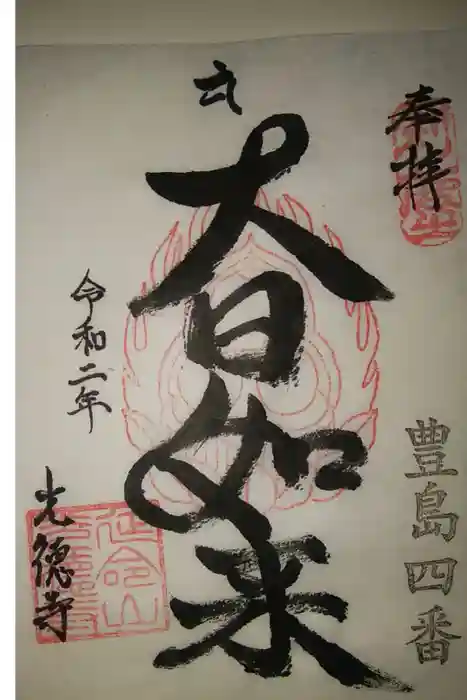 奉拝
豊島四番
大日如来
令和二年
光徳寺